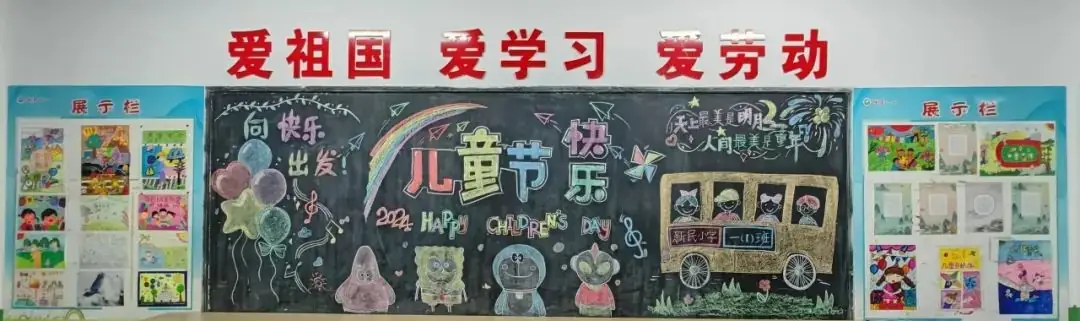 爱祖国 爱学习 爱劳动
展示栏
向快乐
出发!
儿童节快乐
2024 HAPPY CHILDREN'S DAY
天上最美是明月
人间最美是童年
新民小学 一(1)班
展示栏